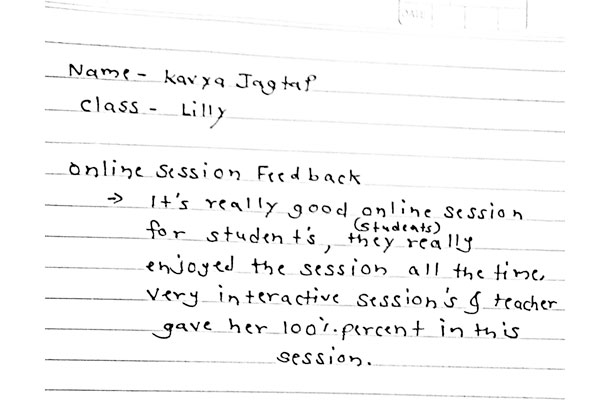 DATE
Name - Kavya Jagtap
Class - Lilly
Online Session Feedback
→ It's really good online session
(students)
for student's, they really
enjoyed the session all the time,
Very interactive session's & teacher
gave her 100%.percent in this
session.